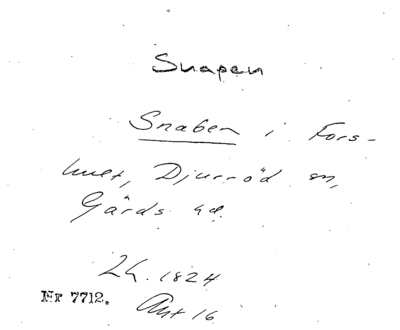 Snapen
Snaben i Fors-
hult, Djurröd sn,
Gärds hd.
LH. 1824
Nr 7712. Akt 16